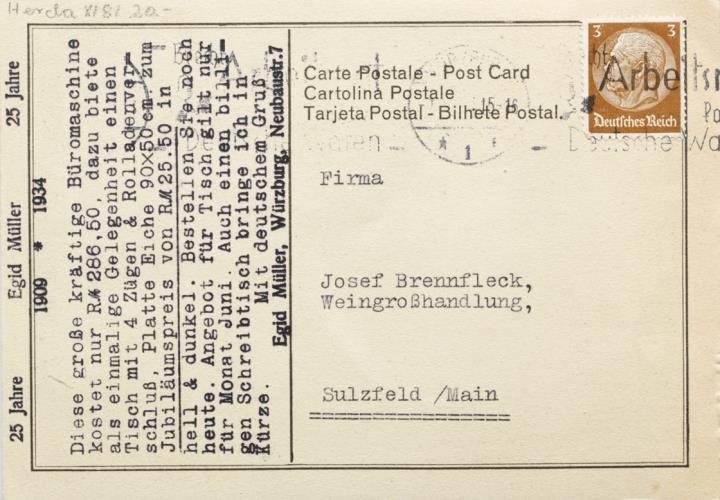 Herda XI 81 20.-
25 Jahre Egid Müller 25 Jahre
1909 * 1934
Diese große kräftige Büromaschine
kostet nur RM 286,50, dazu biete
als einmalige Gelegenheit einen
Tisch mit 4 Zügen & Rolladenver-
schluß, Platte Eiche 90x50 cm zum
Jubiläumspreis von RM 25.50 in
hell & dunkel. Bestellen Sie noch
heute. Angebot für Tisch gilt nur
für Monat Juni. Auch einen billi-
gen Schreibtisch bringe ich in
Kürze. Mit deutschem Gruß
Egid Müller, Würzburg, Neubaustr. 7
Carte Postale - Post Card
Cartolina Postale
Tarjeta Postal - Bilhete Postal.
3 3
Deutsches Reich
15-16
1
Deutsche Wa
Firma
Josef Brennfleck,
Weingroßhandlung,
Sulzfeld /Main